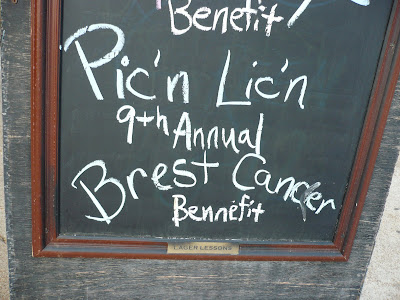 Benefit
Pic'n Lic'n
9th Annual
Brest Cancer
Bennefit
LAGER LESSONS